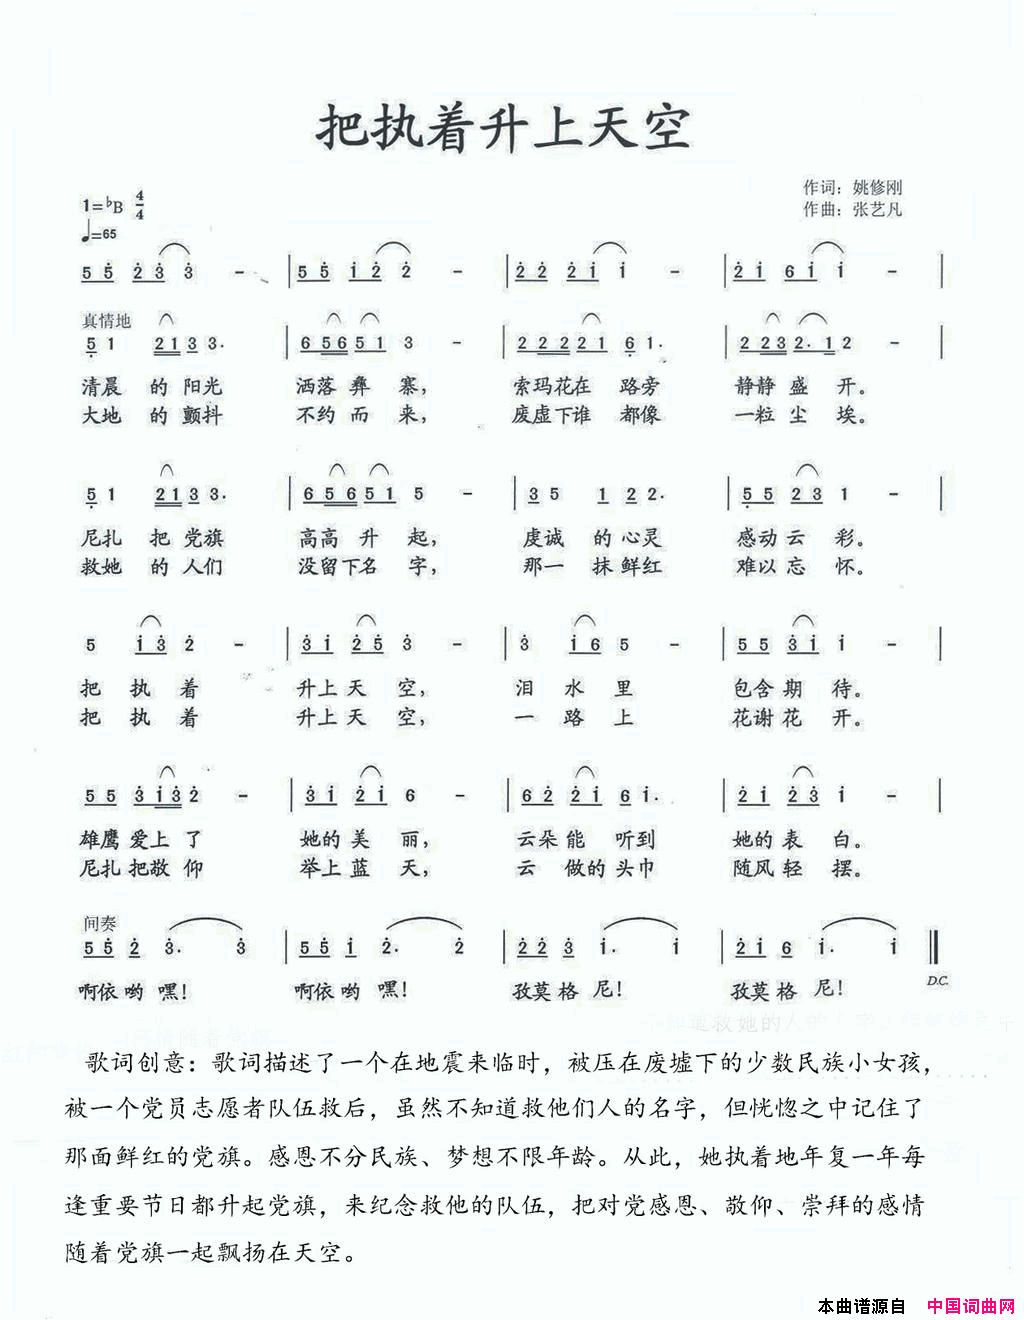 把执着升上天空
作词：姚修刚
1=♭B 4/4
作曲：张艺凡
♩=65
5 5 2 3 3 - | 5 5 1 2 2 - | 2 2 2 1 1 - | 2 1 6 1 1 - |
真情地
5 1 2 1 3 3. | 6 5 6 5 1 3 - | 2 2 2 2 1 6 1. | 2 2 3 2. 1 2 - |
清晨 的 阳光 洒落 彝 寨， 索玛花在 路旁 静静 盛 开。
大地 的 颤抖 不约 而 来， 废虚下谁 都像 一粒 尘 埃。
5 1 2 1 3 3. | 6 5 6 5 1 5 - | 3 5 1 2 2. | 5 5 2 3 1 - |
尼扎 把 党旗 高高 升 起， 虔诚 的 心灵 感动 云 彩。
救她 的 人们 没留下名 字， 那一 抹鲜红 难以 忘 怀。
5 1 3 2 - | 3 1 2 5 3 - | 3 1 6 5 - | 5 5 3 1 1 - |
把 执 着 升上 天 空， 泪 水 里 包含 期 待。
把 执 着 升上 天 空， 一 路 上 花谢 花 开。
5 5 3 1 3 2 - | 3 1 2 1 6 - | 6 2 2 1 6 1. | 2 1 2 3 1 - |
雄鹰 爱上 了 她的 美 丽， 云朵 能 听到 她的 表 白。
尼扎 把敬 仰 举上 蓝 天， 云 做的 头巾 随风 轻 摆。
间奏
5 5 2 3. 3 | 5 5 1 2. 2 | 2 2 3 1. 1 | 2 1 6 1. 1 ‖
啊依 哟 嘿！ 啊依 哟 嘿！ 孜莫 格 尼！ 孜莫 格 尼！ D.C.
歌词创意：歌词描述了一个在地震来临时，被压在废墟下的少数民族小女孩，
被一个党员志愿者队伍救后，虽然不知道救他们人的名字，但恍惚之中记住了
那面鲜红的党旗。感恩不分民族、梦想不限年龄。从此，她执着地年复一年每
逢重要节日都升起党旗，来纪念救他的队伍，把对党感恩、敬仰、崇拜的感情
随着党旗一起飘扬在天空。
本曲谱源自 中国词曲网